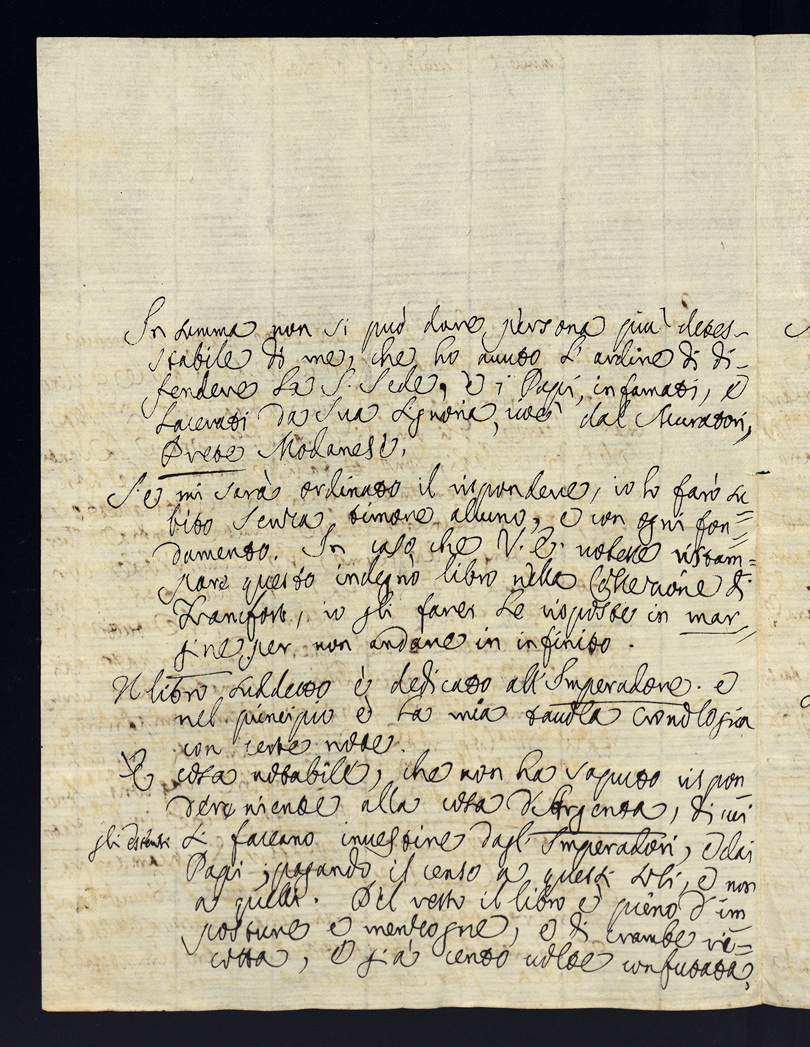 In somma non si può dare persona più detes-
stabile di me, che ho avuto l'ardire di di-
fendere la S. Sede, e i Papi, infamati, e
lacerati da Sua Signoria, cioè dal Muratori,
Prete Modanese.
Se mi sarà ordinato il rispondere, io lo farò su=
bito senza timore alcuno, e con ogni fon=
damento. In caso che V. E. volesse ristam=
pare questo indegno libro nella Collezione di
Francfort, io gli farei le risposte in mar=
gine per non andare in infinito.
Il libro suddetto è dedicato all'Imperadore. e
nel principio è la mia tavola cronologica
con certe note.
È cosa notabile, che non ha saputo rispon
dere niente alla cosa d'Argenta, di cui
gli Estensi si faceano investire dagl'Imperadori, e dai
Papi, pagando il censo a questi soli, e non
a quelli. Del resto il libro è pieno d'im
posture e menzogne, e di crambe ri=
cotta, e già cento volte confutata,